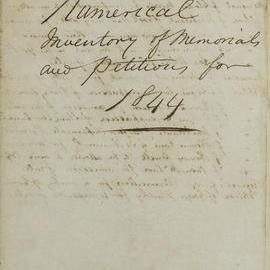 Numerical
Inventory of Memorials
and Petitions for
1844